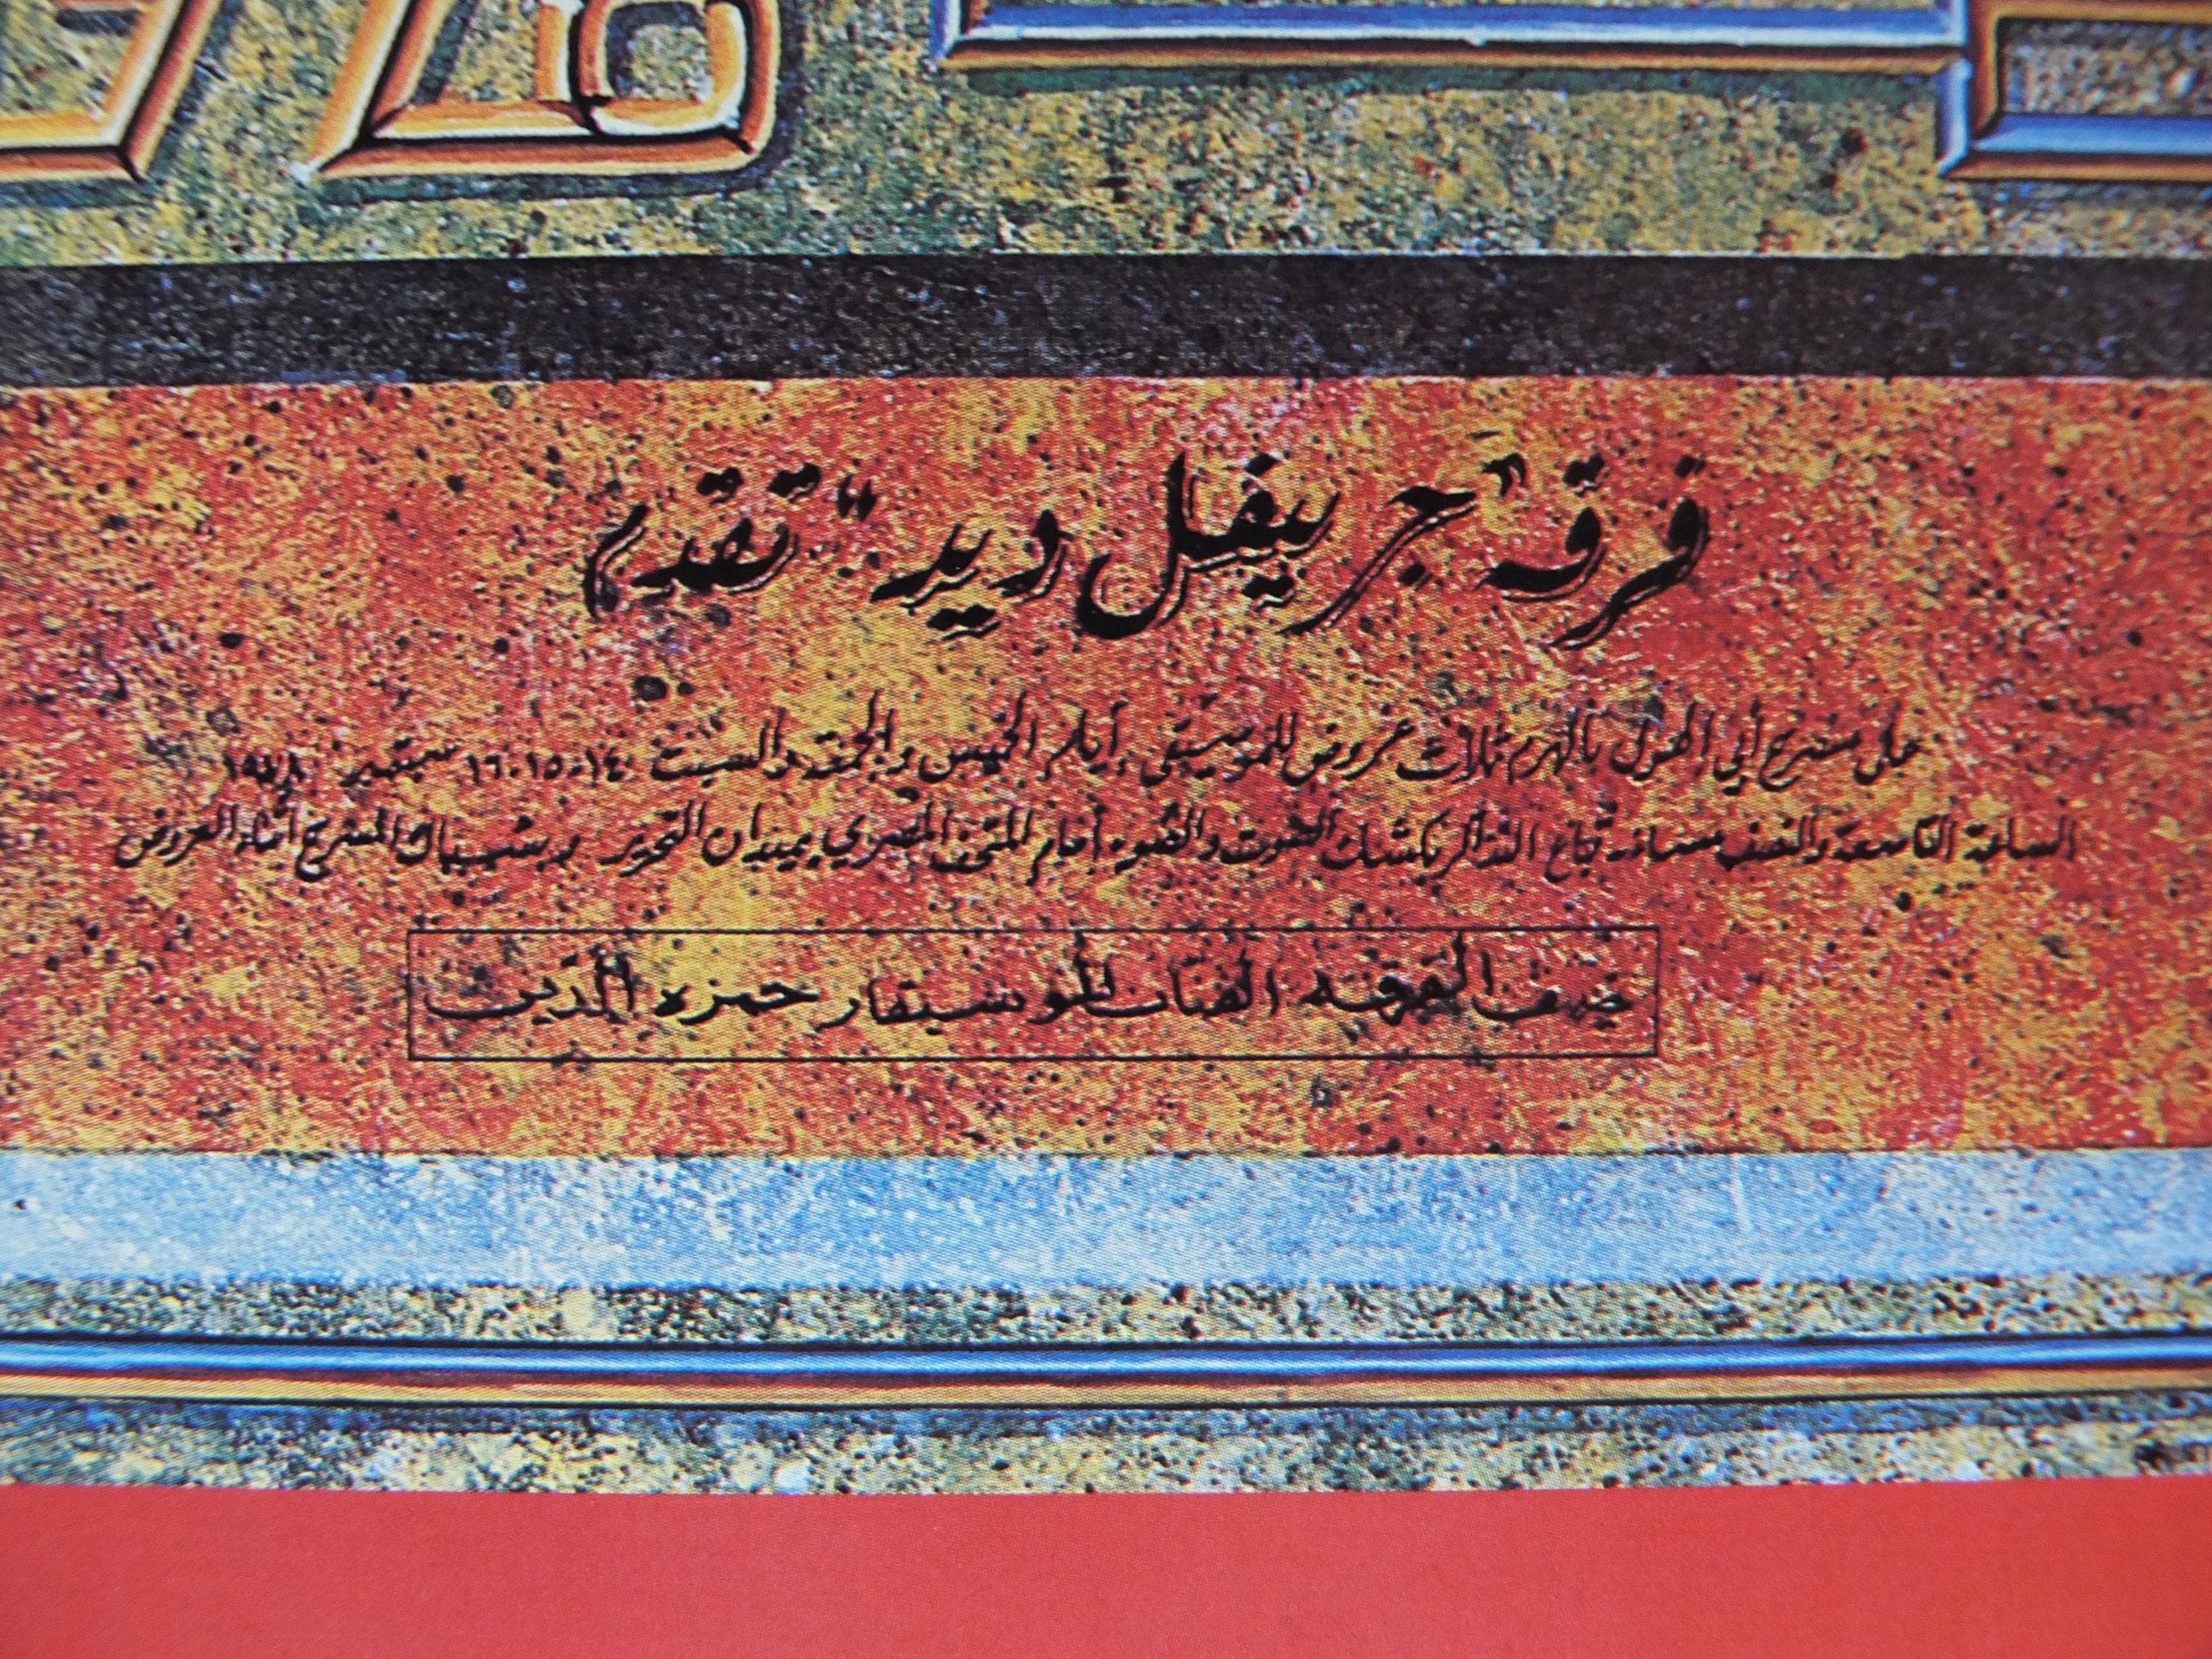 978
فرقة "جريفل ديد" تقدم
على مسرح أبي الهول بالهرم ثلاث عروض للموسيقى أيام الخميس والجمعة والسبت ١٤، ١٥، ١٦ سبتمبر ١٩٧٨
الساعة التاسعة والنصف مساء. تباع التذاكر بكشك الصوت والضوء أمام المتحف المصري بميدان التحرير وبشباك المسرح أثناء العروض
ضيف الفرقة الفنان الموسيقار حمزه الدين